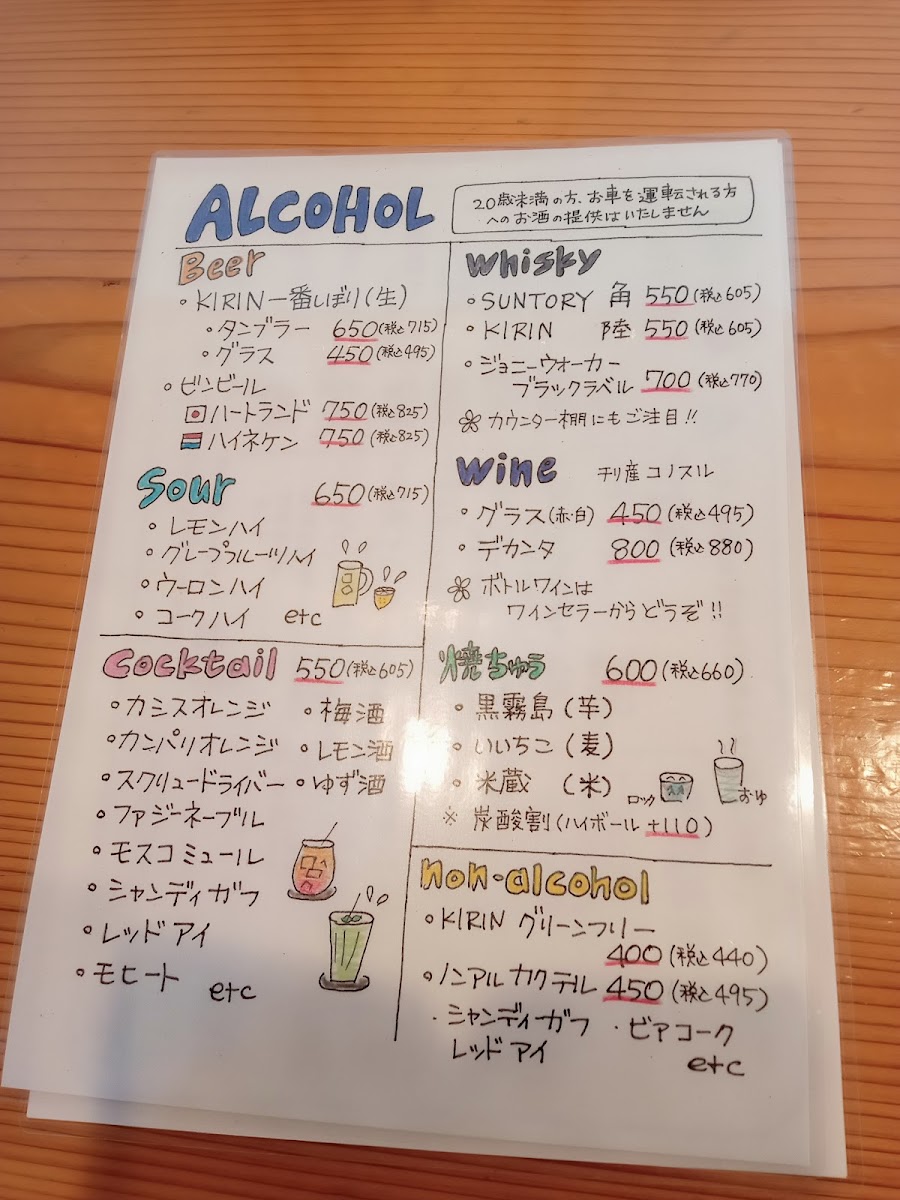 ALCOHOL
20歳未満の方、お車を運転される方
へのお酒の提供はいたしません
Beer
・KIRIN一番しぼり(生)
・タンブラー 650(税込715)
・グラス 450(税込495)
・ビンビール
ハートランド 750(税込825)
ハイネケン 750(税込825)
Sour 650(税込715)
・レモンハイ
・グレープフルーツハイ
・ウーロンハイ
・コークハイ etc
Cocktail 550(税込605)
・カシスオレンジ ・梅酒
・カンパリオレンジ ・レモン酒
・スクリュードライバー ・ゆず酒
・ファジーネーブル
・モスコミュール
・シャンディガフ
・レッドアイ
・モヒート etc
Whisky
・SUNTORY 角 550(税込605)
・KIRIN 陸 550(税込605)
・ジョニーウォーカー
ブラックラベル 700(税込770)
カウンター棚にもご注目!!
Wine チリ産コノスル
・グラス(赤・白) 450(税込495)
・デカンタ 800(税込880)
ボトルワインは
ワインセラーからどうぞ!!
焼ちゅう 600(税込660)
・黒霧島(芋)
・いいちこ(麦)
・米蔵(米)
ロック おゆ
※炭酸割(ハイボール+110)
non-alcohol
・KIRIN グリーンフリー
400(税込440)
・ノンアルカクテル 450(税込495)
・シャンディーガフ ・ビアコーク
レッドアイ etc